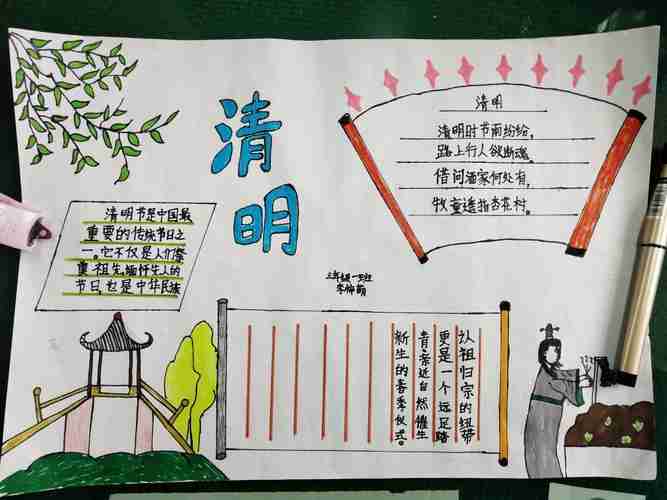 清明
清明
清明时节雨纷纷,
路上行人欲断魂。
借问酒家何处有,
牧童遥指杏花村。
清明节是中国最
重要的传统节日之
一。它不仅是人们
重祖先,缅怀先人的
节日,也是中华民族
三年级一班
认祖归宗的纽带
更是一个远足踏
青亲近自然催生
新生的春季仪式。